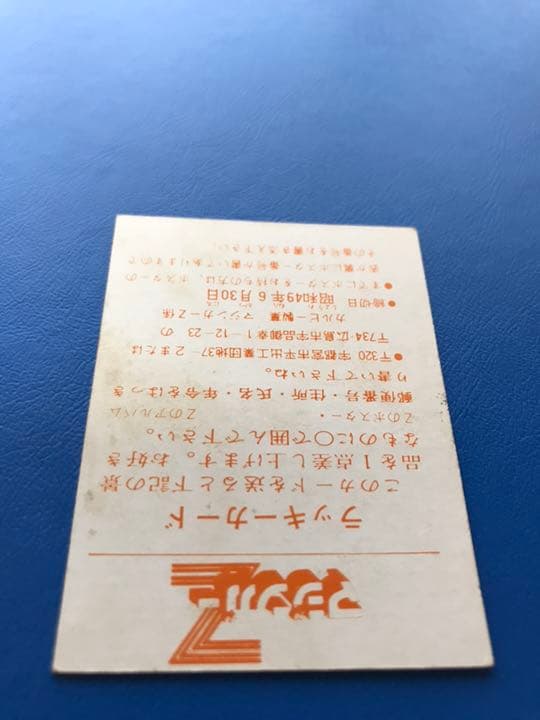 マジンガー
Z
ラッキーカード
このカードを送ると下記の景
品を1点差し上げます。お好き
なものに○で囲んで下さい。
Zのポスター・ Zのアルバム
郵便番号・住所・氏名・年令をはっき
り書いて下さいね。
●〒320 宇都宮市平出工業団地37-2または
〒734 広島市宇品御幸1-12-23 の
カルビー製菓 マジンガーZ係
●締切日 昭和49年6月30日
●すでにポスターをお持ちの方は、ポスターの
表か裏にポスター番号が書いてありますので
その番号をお書き添え下さい。